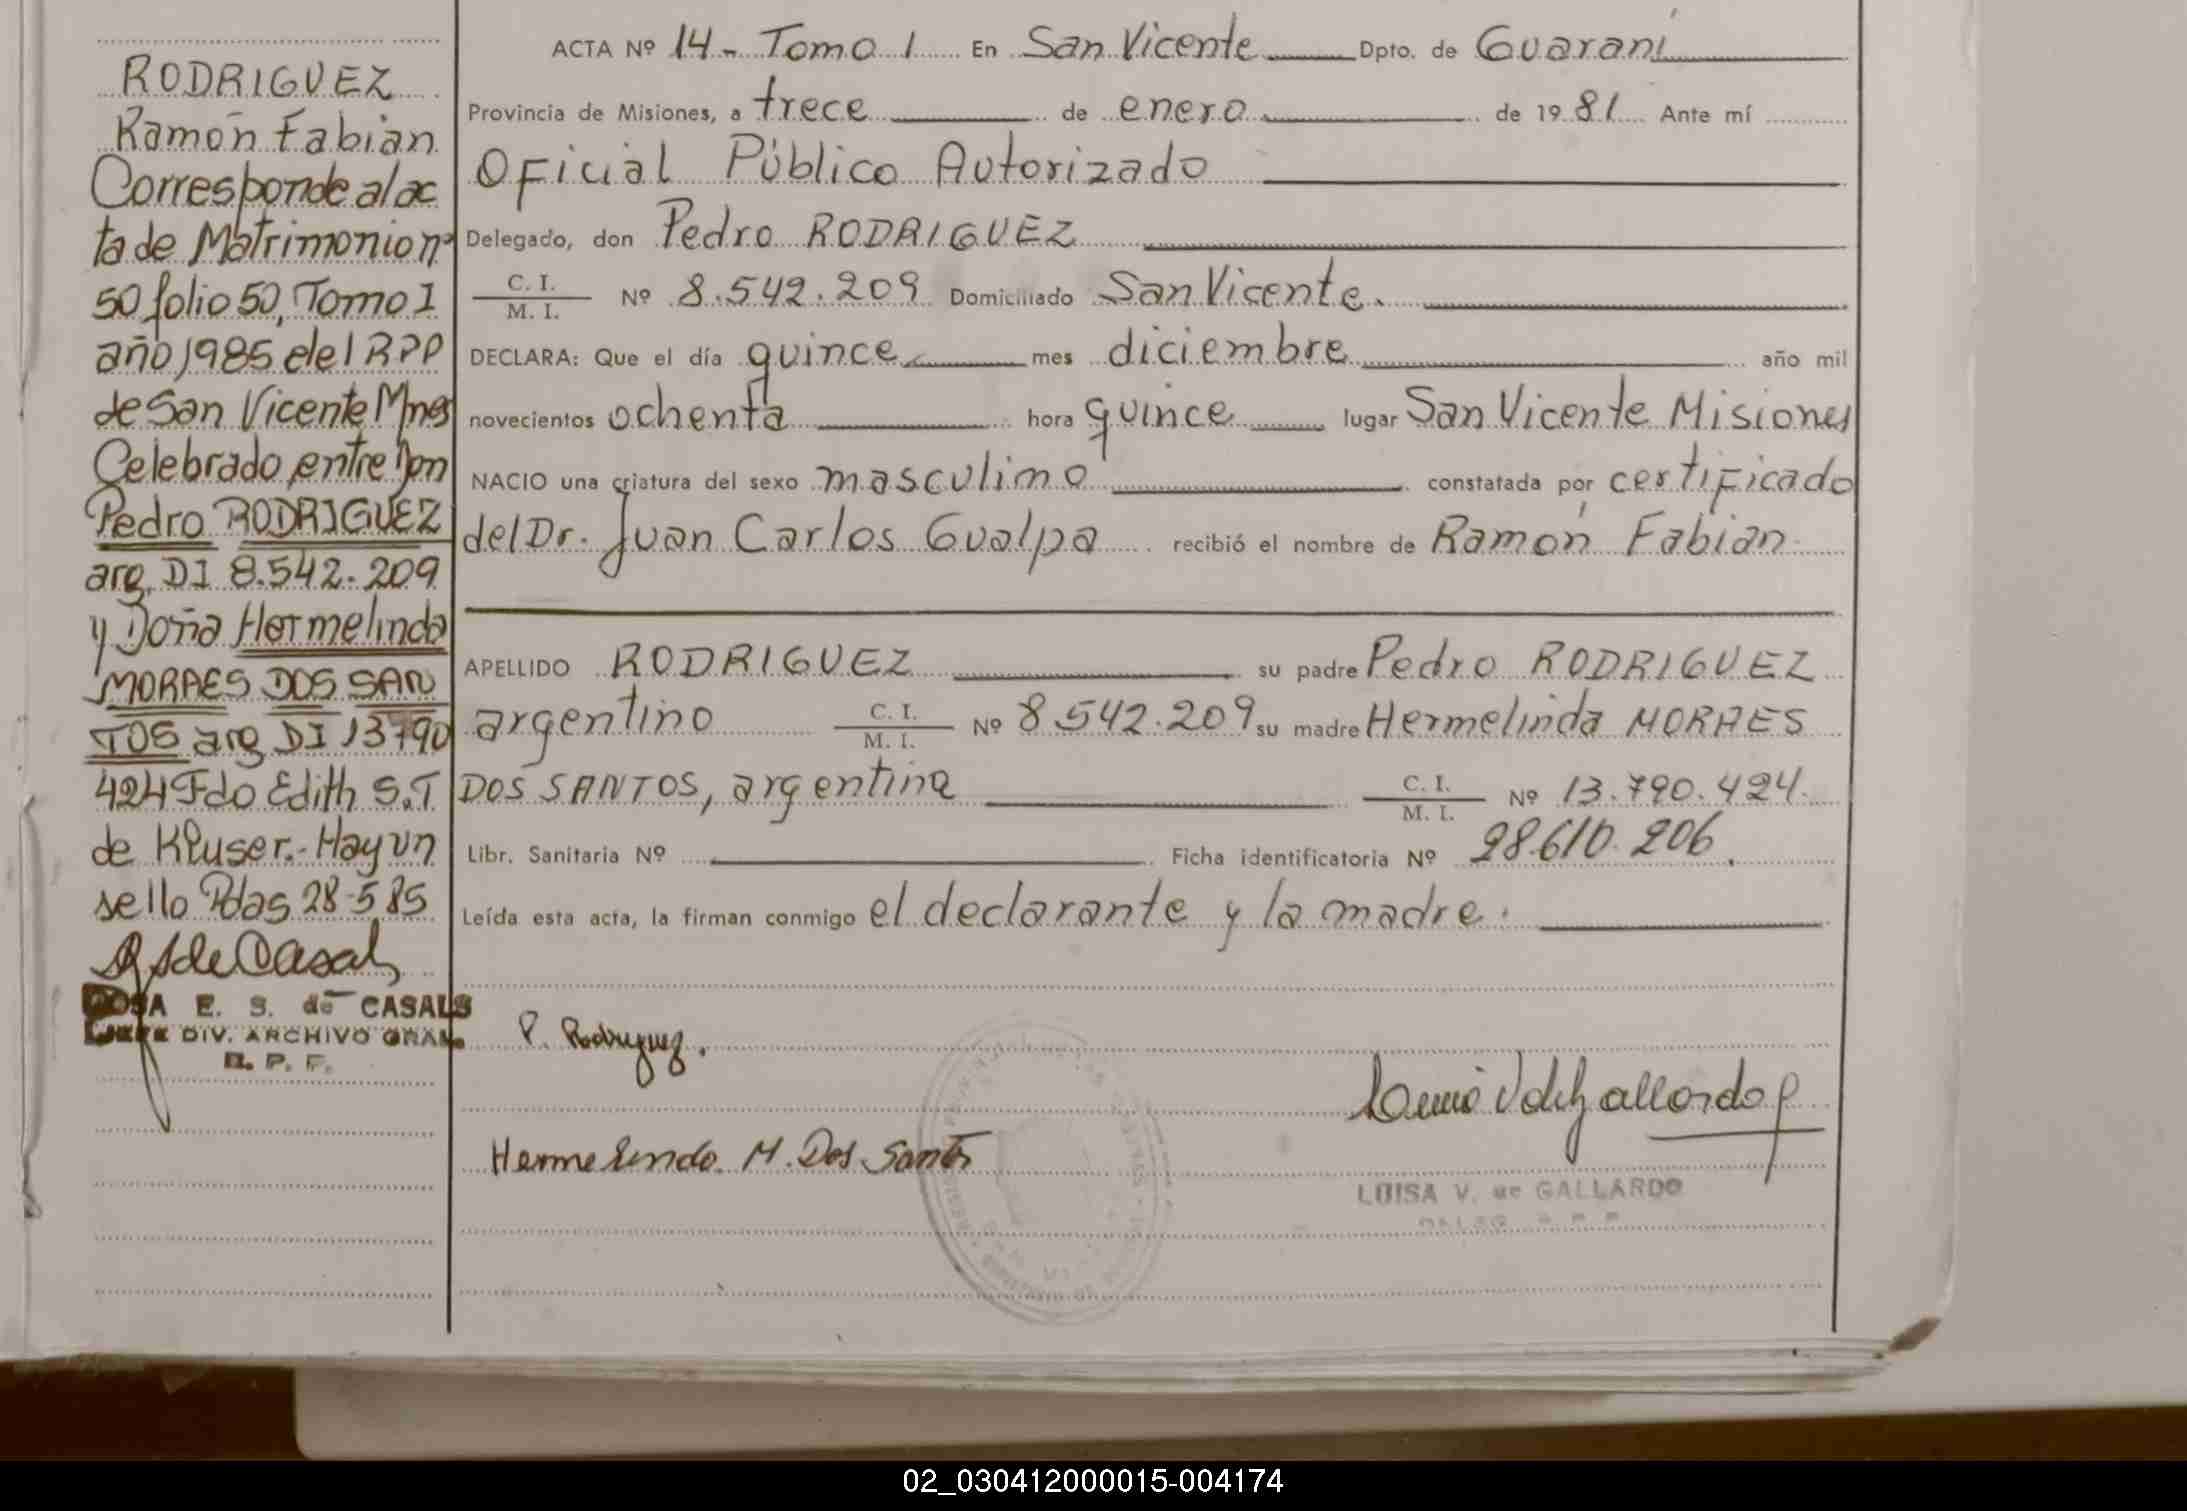 RODRIGUEZ
Ramón Fabian
Corresponde al ac
ta de Matrimonio nº
50 folio 50, Tomo I
año 1985 del RPP
de San Vicente Mnes
Celebrado entre Don
Pedro RODRIGUEZ
arg. DI 8.542.209
y Doña Hermelinda
MORAES DOS SAN
TOS arg DI 13790
424 Fdo Edith S.T
de Kluser.- Hay un
sello Pdas 28-5 85
ROSA E. S. de CASALS
JEFE DIV. ARCHIVO GRAL.
R. P. P.
ACTA Nº 14 - Tomo 1 En San Vicente Dpto. de Guaraní
Provincia de Misiones, a trece de enero de 1981 Ante mí
Oficial Público Autorizado
Delegado, don Pedro RODRIGUEZ
C. I.
M. I. Nº 8.542.209 Domiciliado San Vicente.
DECLARA: Que el día quince mes diciembre año mil
novecientos ochenta hora quince lugar San Vicente Misiones
NACIO una criatura del sexo masculino constatada por certificado
del Dr. Juan Carlos Gualpa recibió el nombre de Ramón Fabian
APELLIDO RODRIGUEZ su padre Pedro RODRIGUEZ
argentino C. I. M. I. Nº 8.542.209 su madre Hermelinda MORAES
DOS SANTOS, argentina C. I. M. I. Nº 13.790.424.
Libr. Sanitaria Nº Ficha identificatoria Nº 28.610.206.
Leída esta acta, la firman conmigo el declarante y la madre.
P. Rodriguez.
Hermelinda M. Dos Santos
LUISA V. de GALLARDO
02_030412000015-004174